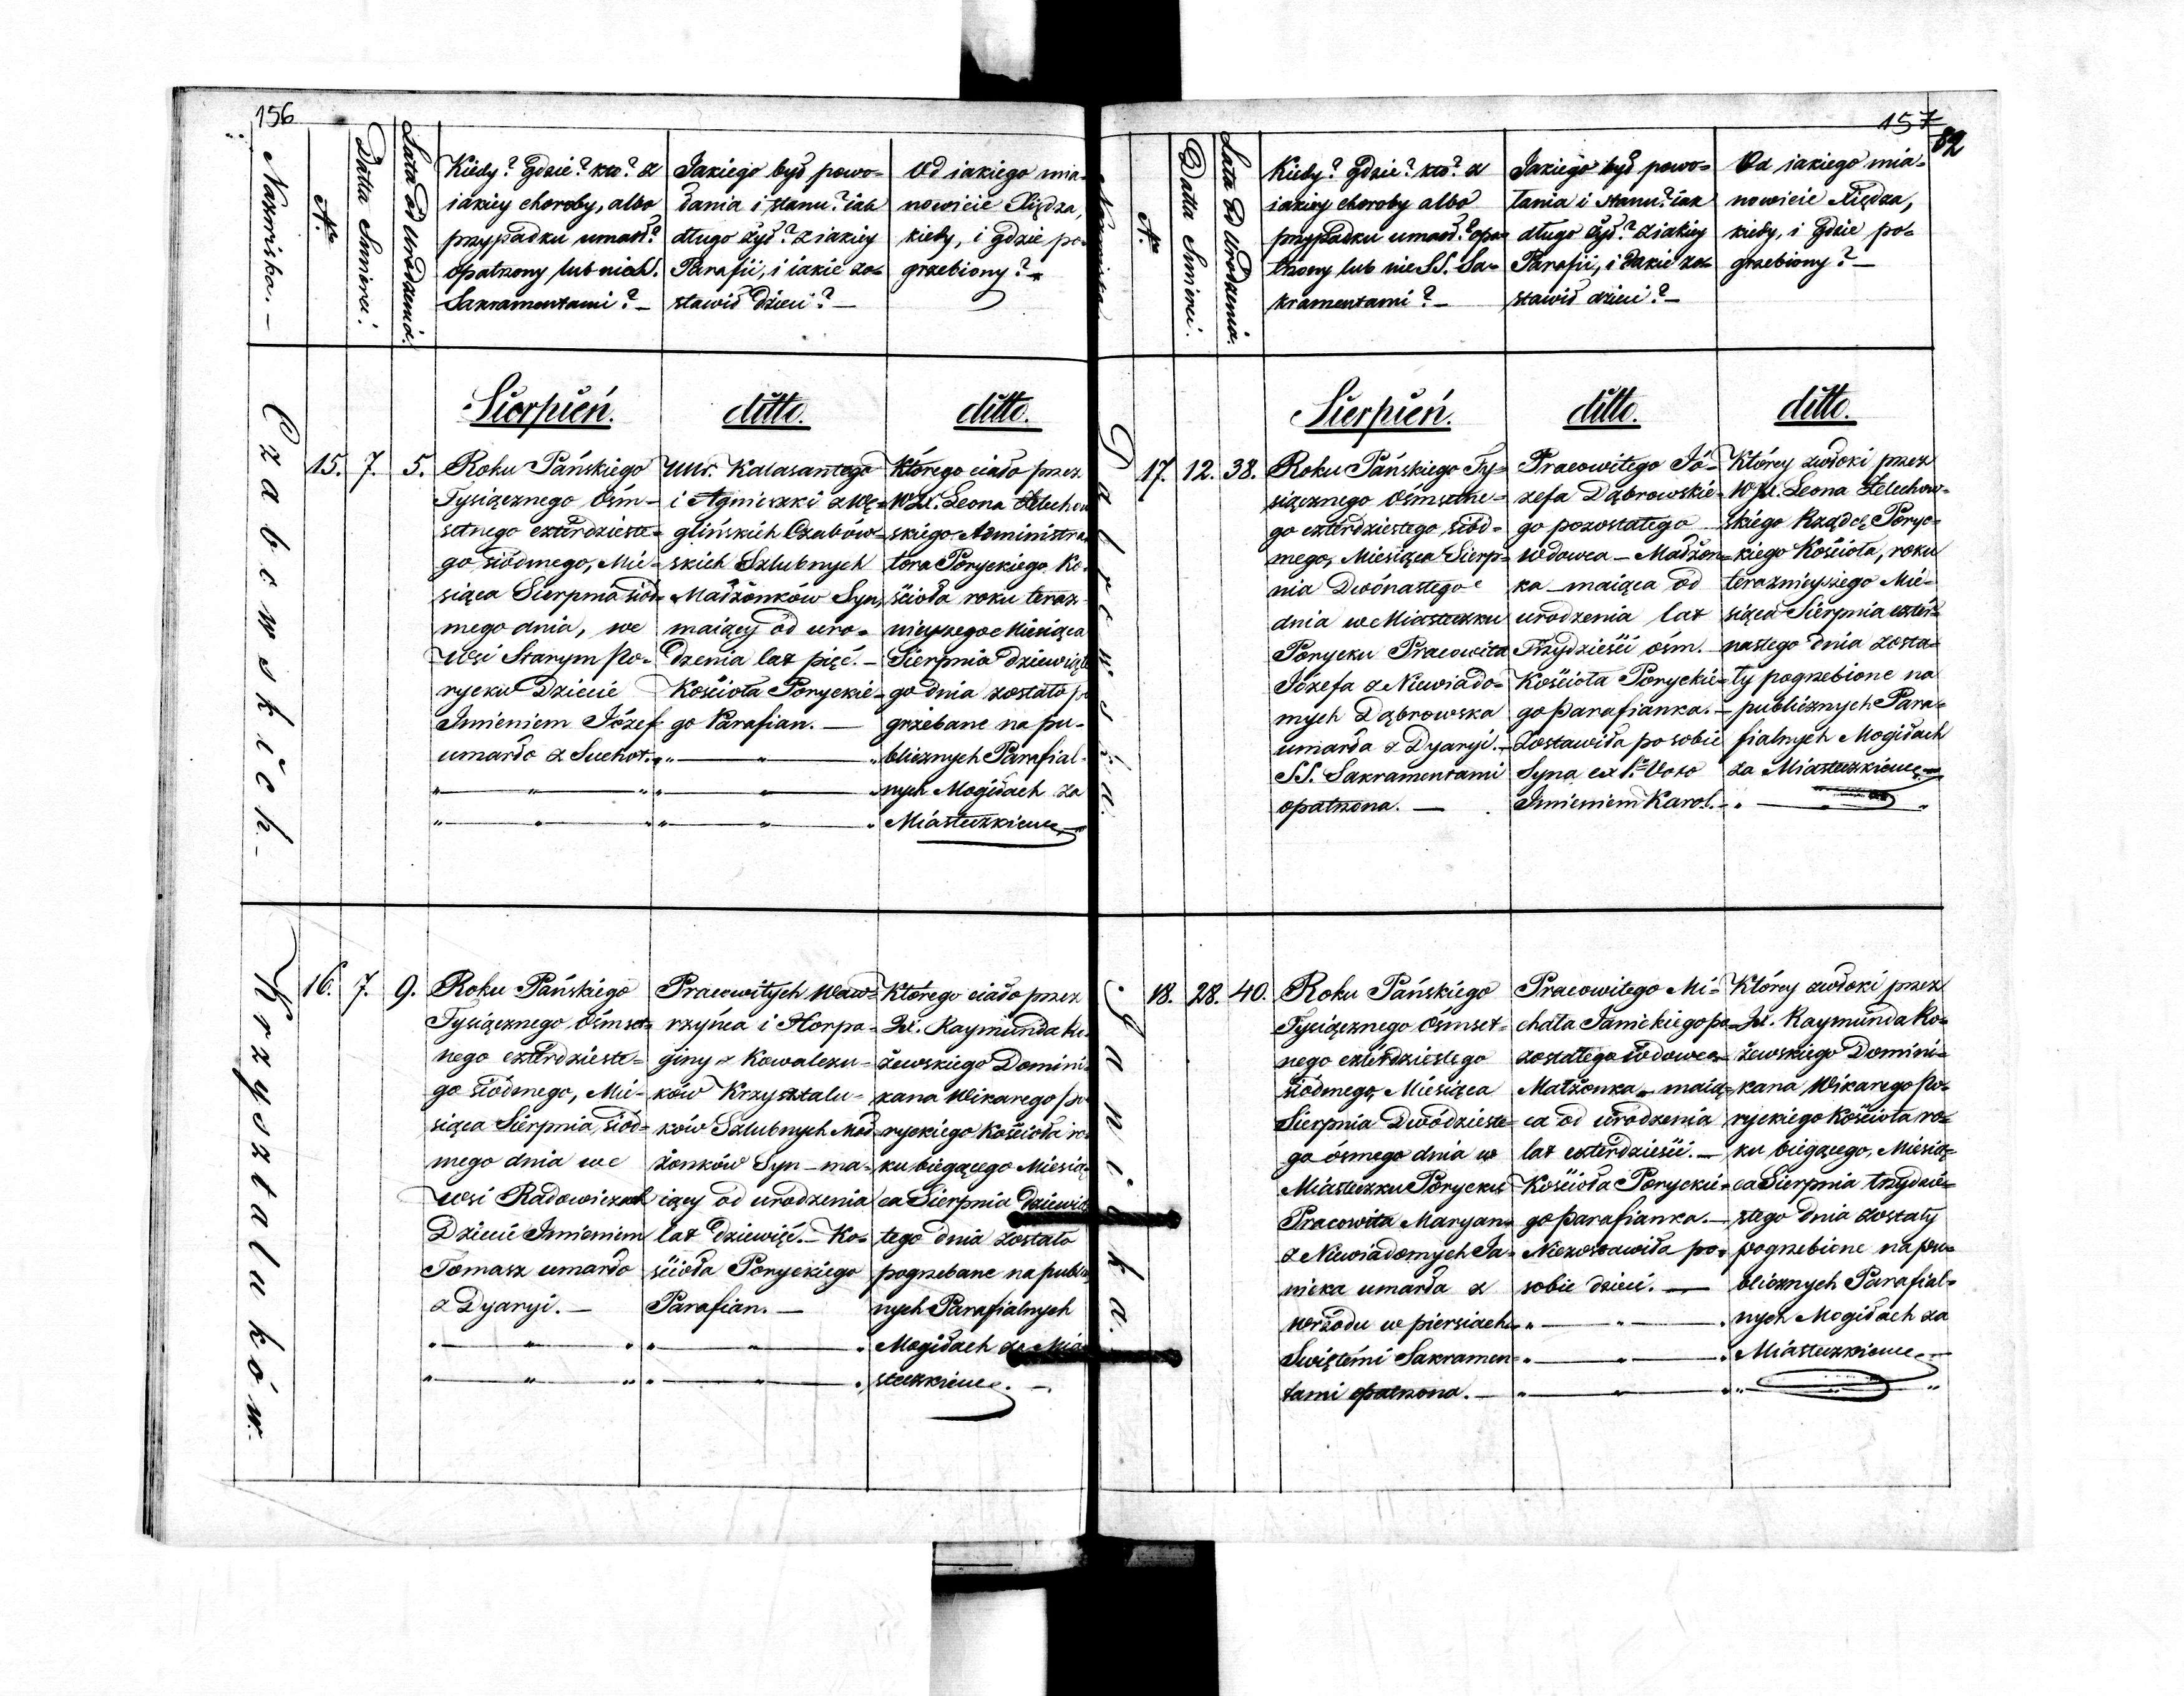 156
Nazwiska.
N.
Datta Śmierci.
Lata od Urodzenia.
Kiedy? Gdzie? kto? z
iakiey choroby, albo
przypadku umarł?
opatrzony lub nie
Sakramentami? —
Jakiego był powo=
łania i stanu? iak
długo żył? z iakiey
Parafii, i iakie zo=
stawił Dzieci? —
Od iakiego mia=
nowicie Xiędza,
kiedy, i gdzie po=
grzebiony? —
Czabowskich.
15. 7. 5.
Sierpień.
Roku Pańskiego
Tysiącznego Ośm=
setnego czterdzieste=
go siódmego, Mie=
siąca Sierpnia siód=
mego dnia, we
Wsi Starym Po=
rycku Dziecie
Imieniem Józef
umarło z Suchot.
ditto.
Kalasantego
i Agnieszki z Wę=
glińskich Czabow=
skich Szlubnych
Małżonków Syn,
maiący od uro=
dzenia lat pięć. —
Kościoła Poryckie=
go Parafian. —
ditto.
Którego ciało przez
Leona Żelechow
skiego Administra
tora Poryckiego Ko=
ścioła roku teraz=
nieyszego Miesiąca
Sierpnia dziewiąte
go dnia zostało po
grzebane na pu=
blicznych Parafial=
nych Mogiłach za
Miasteczkiem
Krzyształuków.
16. 7. 9.
Roku Pańskiego
Tysiącznego Ośmset=
nego czterdzieste=
go siódmego, Mie=
siąca Sierpnia, siód=
mego dnia we
Wsi Radowiczach
Dziecie Imieniem
Tomasz umarło
z Dyaryi. —
Pracowitych Waw=
rzyńca i Horpa=
giny z Kowalczu=
ków Krzyształu=
ków Szlubnych Mał
żonków Syn — ma=
iący od urodzenia
lat dziewięć. — Ko=
ścioła Poryckiego
Parafian. —
Którego ciało przez
Raymunda Ko=
żewskiego Domini=
kana Wikarego Po
ryckiego Kościoła ro=
ku biegącego Miesią=
ca Sierpnia dziewią
tego dnia zostało
pogrzebane na publi
nych Parafialnych
Mogiłach za Mia
steczkiem. —
157
82
Nazwiska
N.
Datta Śmierci.
Lata od Urodzenia.
Kiedy? Gdzie? kto? z
iakiey choroby albo
przypadku umarł? opa=
trzony lub nie SS. Sa=
kramentami? —
Jakiego był powo=
łania i stanu? iak
długo żył? z iakiey
Parafii, i iakie zo=
stawił dzieci? —
Od iakiego mia=
nowicie Xiędza,
kiedy, i gdzie po=
grzebiony? —
17. 12. 38.
Sierpień.
Roku Pańskiego Ty=
siącznego Ośmsetne=
go czterdziestego siód=
mego, Miesiąca Sierp=
nia Dwónastego
dnia w Miasteczku
Porycku Pracowita
Józefa z Niewiado=
mych Dąbrowska
umarła z Dyaryi. —
SS. Sakramentami
opatrzona. —
ditto.
Pracowitego Jó=
zefa Dąbrowskie=
go pozostałego
wdowca — Małżon=
ka — maiąca od
urodzenia lat
Trzydzieści ośm.
Kościoła Poryckie=
go parafianka. —
Zostawiła po sobie
Syna ex 1. Voto
Imieniem Karol. —
ditto.
Którey zwłoki przez
Leona Żelechow=
skiego Rządcę Poryc=
kiego Kościoła, roku
teraznieyszego Mie=
siąca Sierpnia czter=
nastego dnia zosta=
ły pogrzebione na
publicznych Para=
fialnych Mogiłach
za Miasteczkiem
Janicka.
18. 28. 40.
Roku Pańskiego
Tysiącznego Ośmset=
nego czterdziestego
siódmego, Miesiąca
Sierpnia Dwódzieste=
go ósmego dnia w
Miasteczku Porycku
Pracowita Maryan=
z Niewiadomych Ja=
nicka umarła z
wrzodu w piersiach
Świętemi Sakramen=
tami opatrzona. —
Pracowitego Mi=
chała Janickiego po=
zostałego wdowca
Małżonka — maią=
ca od urodzenia
lat czterdzieści. —
Kościoła Poryckie=
go parafianka. —
Niezostawiła po=
sobie dzieci. —
Którey zwłoki przez
Raymunda Ko=
żewskiego Domini=
kana Wikarego Po=
ryckiego Kościoła ro=
ku biegącego, Miesią=
ca Sierpnia trzydzie=
stego dnia zostały
pogrzebione na pu=
blicznych Parafial=
nych Mogiłach za
Miasteczkiem —